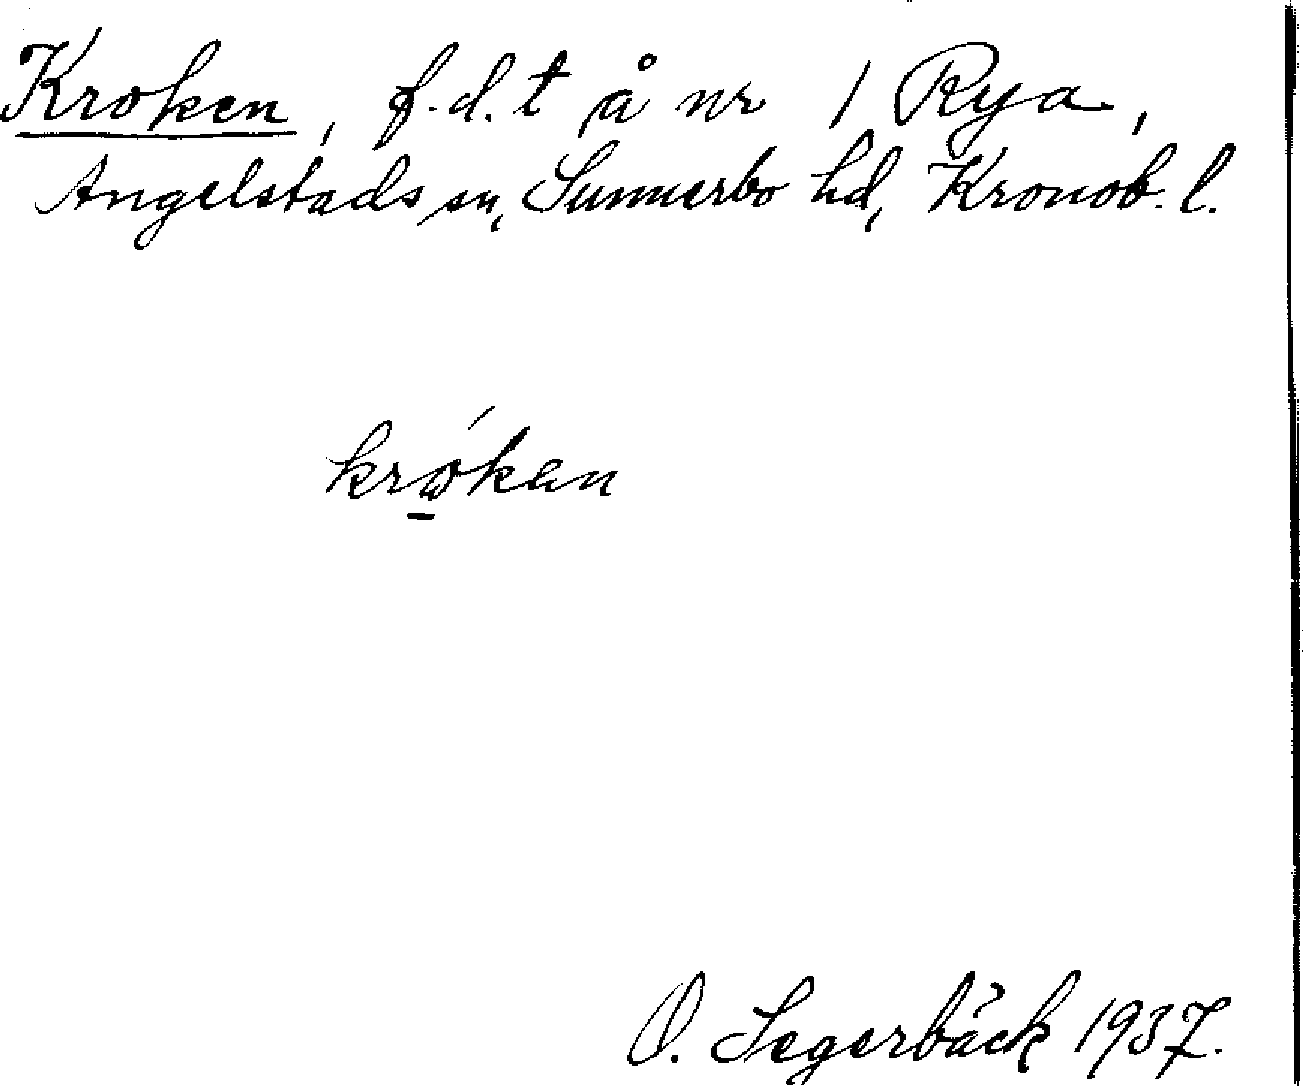 Kroken, f.d. t å nr 1 Rya,
Angelstads sn, Sunnerbo hd, Kronob. l.
krώ̱kan
O. Segerbäck 1937.